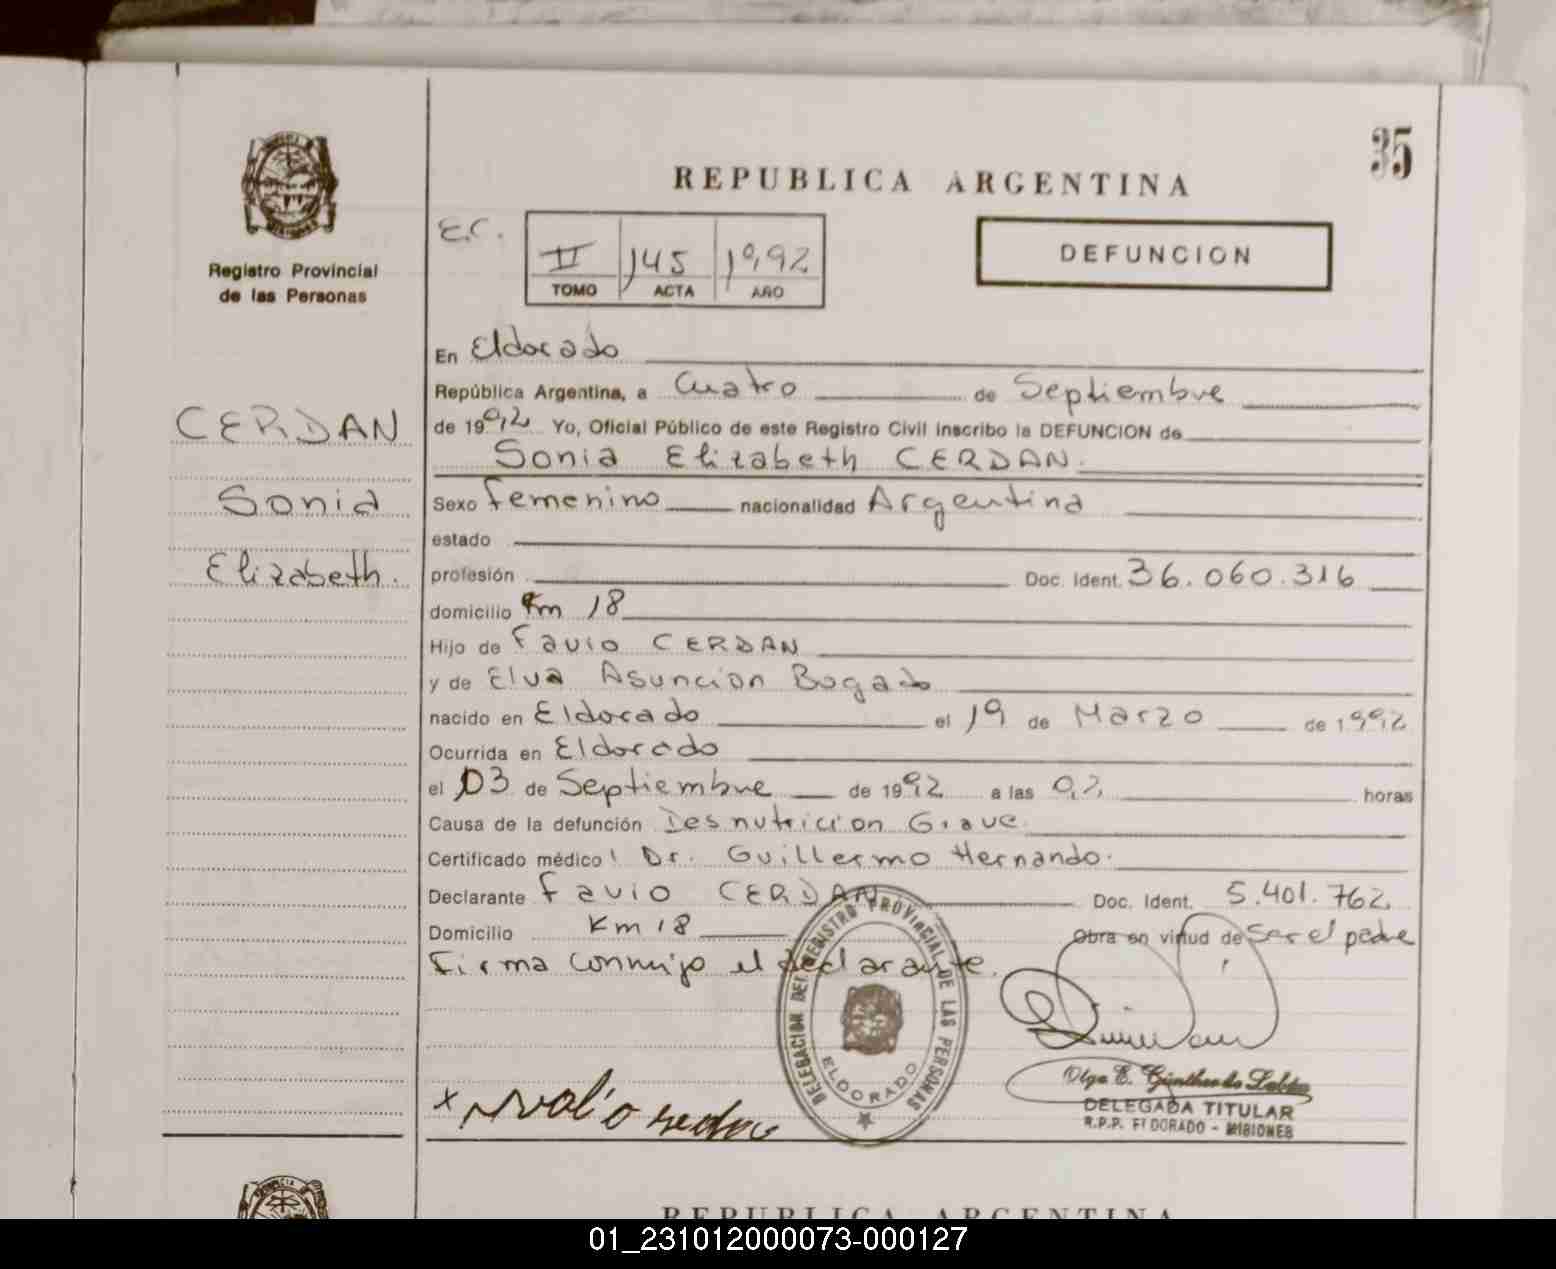 35
REPUBLICA ARGENTINA
Registro Provincial
de las Personas
E.C.
II 145 1992
TOMO ACTA AÑO
DEFUNCION
CERDAN
Sonia
Elizabeth.
En Eldorado
República Argentina, a Cuatro de Septiembre
de 1992 Yo, Oficial Público de este Registro Civil inscribo la DEFUNCION de
Sonia Elizabeth CERDAN.
Sexo femenino nacionalidad Argentina
estado
profesión Doc. Ident. 36.060.316
domicilio Km 18
Hijo de Favio CERDAN
y de Elva Asuncion Bogado
nacido en Eldorado el 19 de Marzo de 1992
Ocurrida en Eldorado
el 03 de Septiembre de 1992 a las 02 horas
Causa de la defunción Desnutricion Grave.
Certificado médico: Dr. Guillermo Hernando.
Declarante Favio CERDAN Doc. Ident. 5.401.762
Domicilio Km 18 Obra en virtud de Ser el padre
Firma conmigo el declarante.
DELEGACION DEL REGISTRO PROVINCIAL DE LAS PERSONAS
ELDORADO
Olga E. Günther de
DELEGADA TITULAR
R.P.P. ELDORADO - MISIONES
REPUBLICA ARGENTINA
01_231012000073-000127